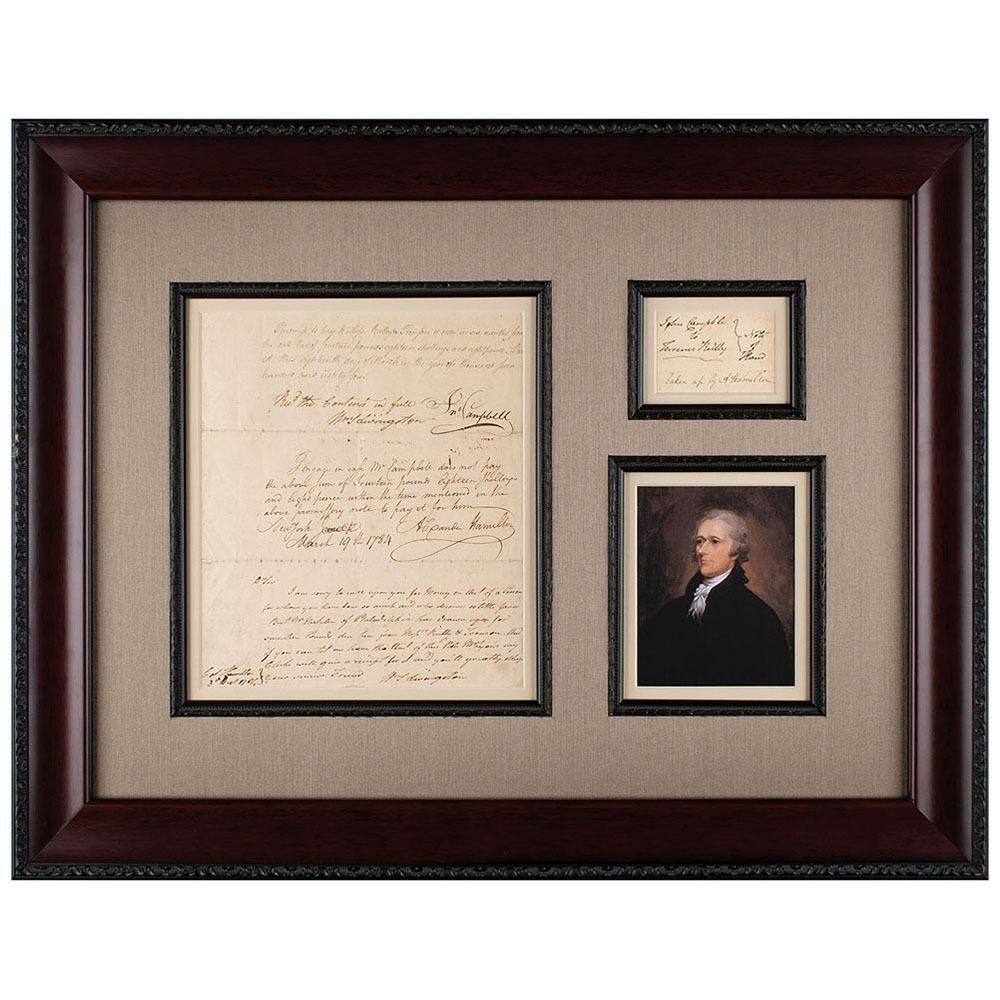 I promise to pay to Mess. Reilly & Company or order in six months from
the date hereof fourteen pounds eighteen shillings and eight pence
this eighteenth day of March in the year of thousand seven
hundred and eighty four.
Rec'd the Contents in full Jno. Campbell
Wm S Livingston
I engage in case Mr Campbell does not pay
the above sum of Fourteen pounds Eighteen Shillings
and Eight pence within the time mentioned in the
above promissory note to pay it for him
New York Alexander Hamilton
March 19th 1784
D Sir
I am sorry to call upon you for Money on Act of a Person
for whom you have done so much and who deserves so little from
But Mr of Philadelphia has drawn upon for
Pounds due him from Reilly &
if you can let me have the Amt of this Note Mr my
Clerke will give a receipt for it and you'll greatly oblige
Your sincere Friend Wm S Livingston
John Campble
to
Terrence Reilly
Note
of
Hand
Taken up by A Hamilton